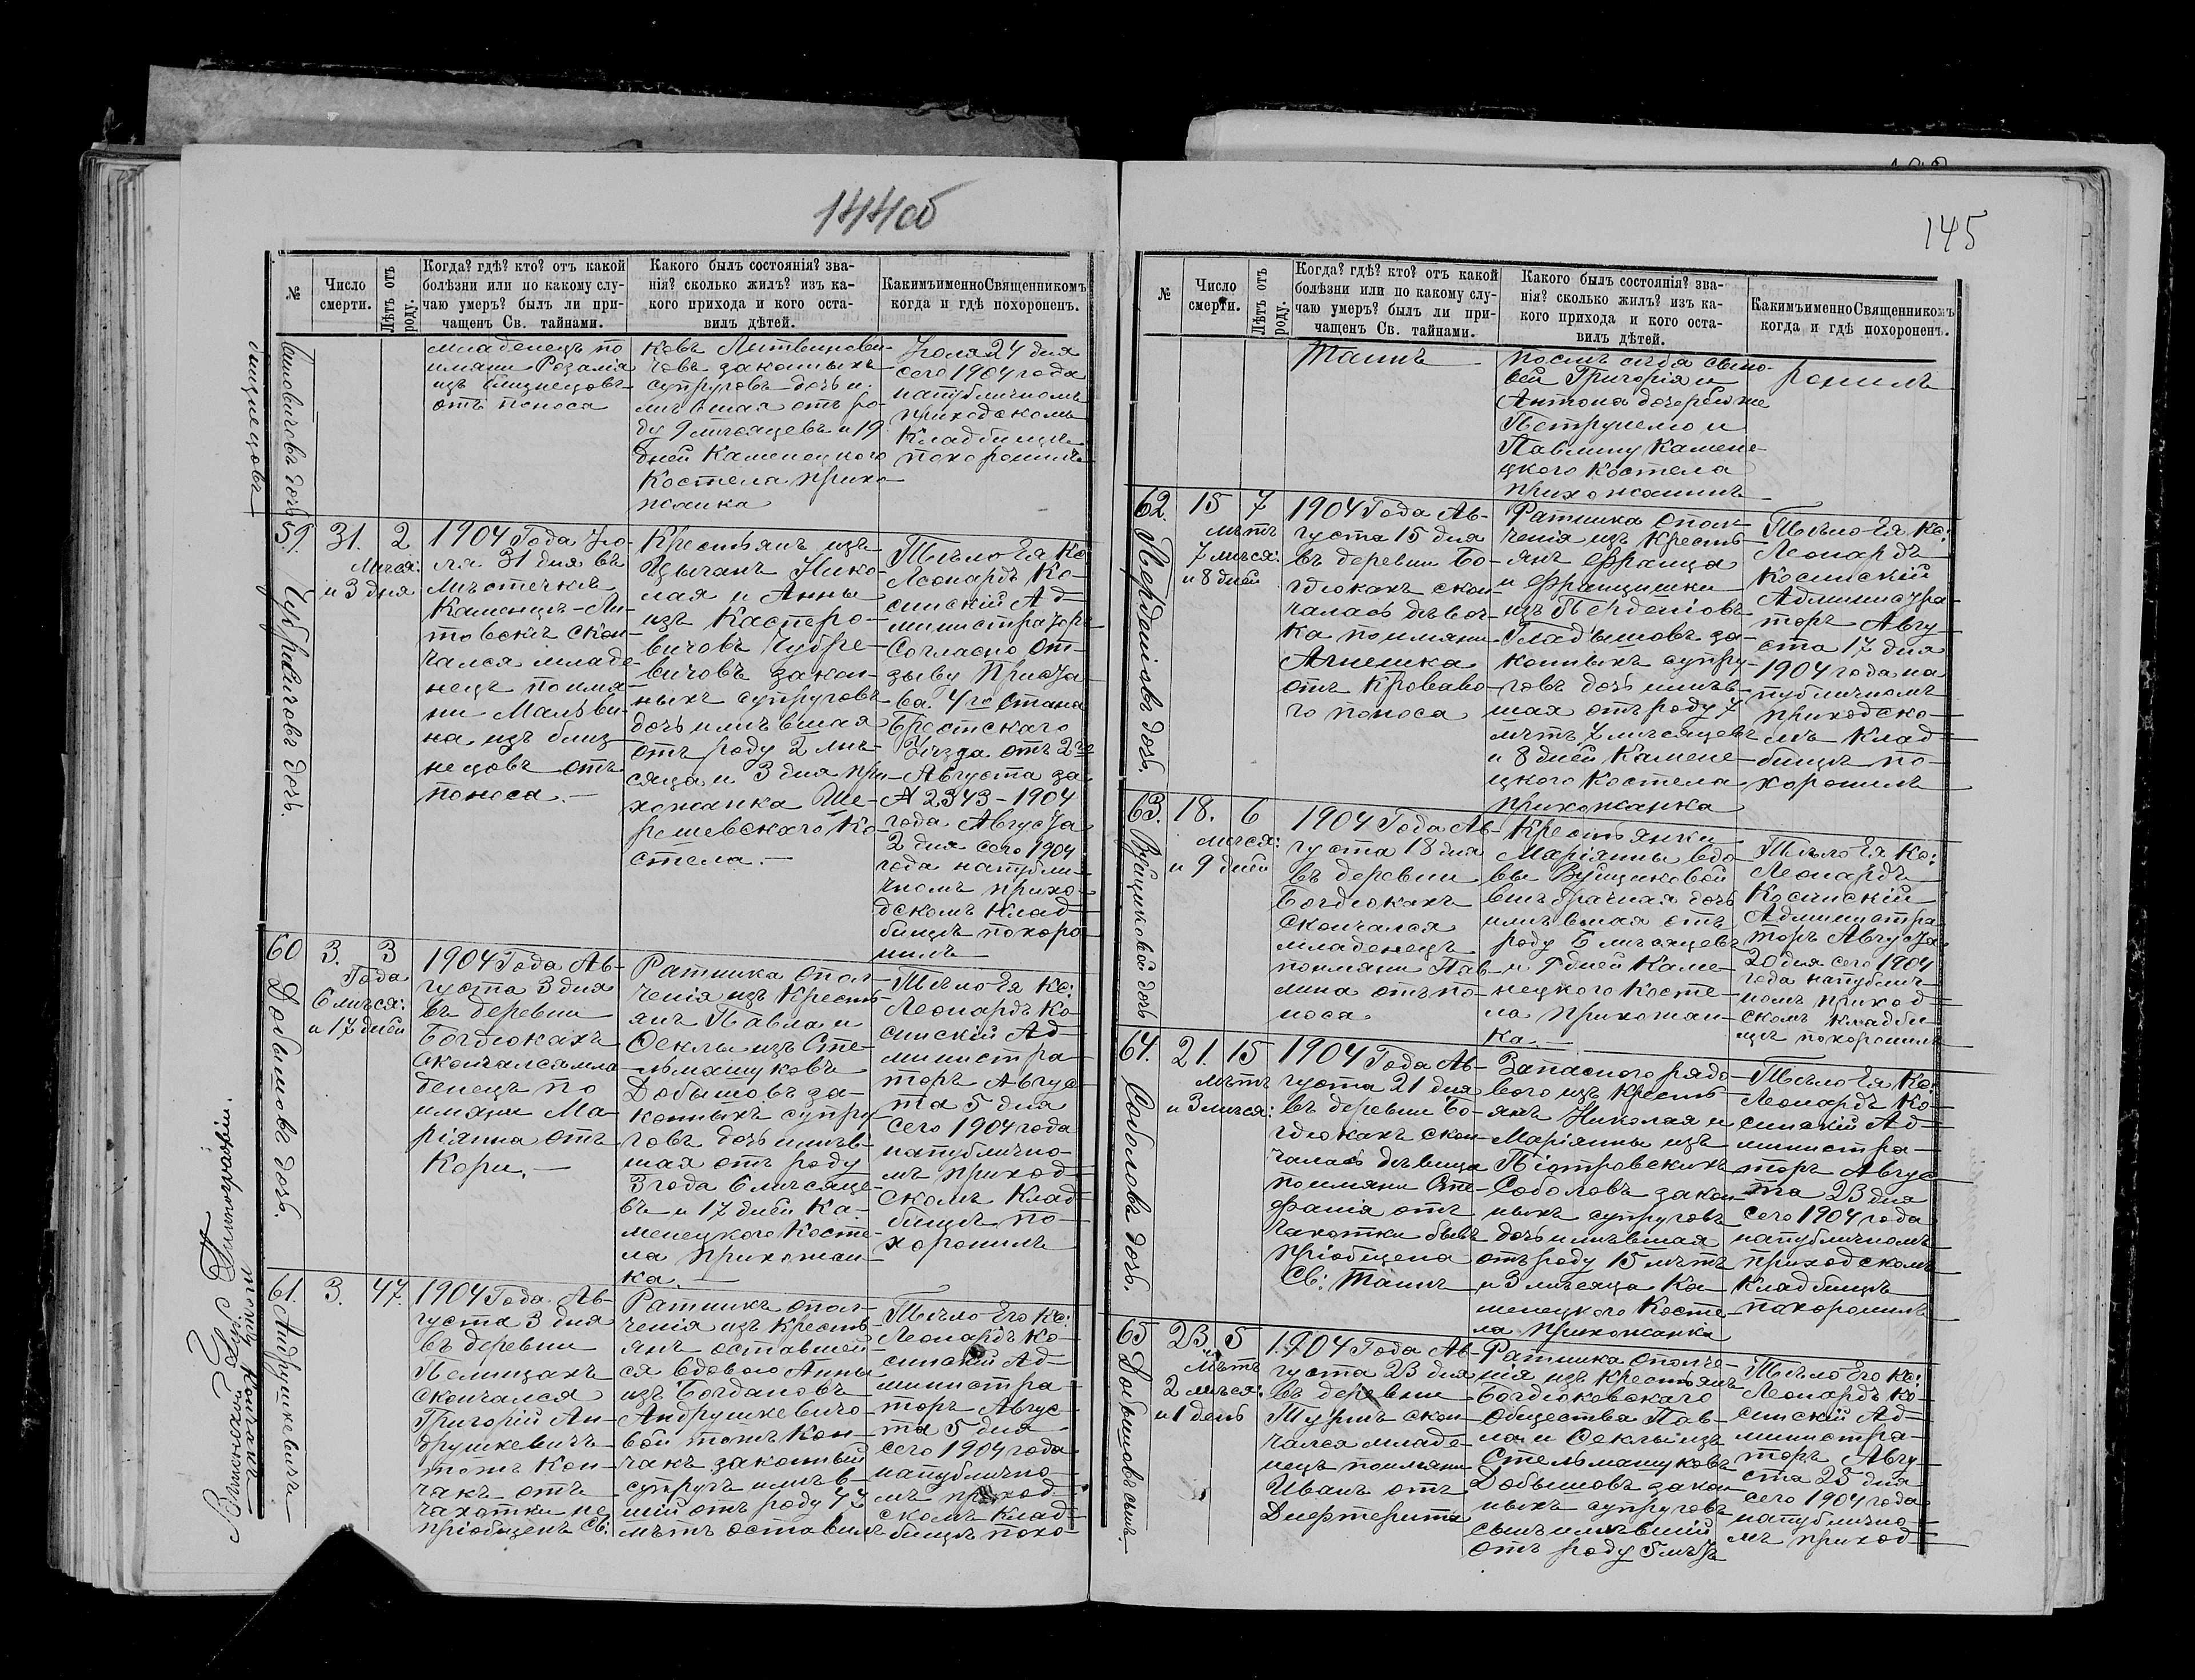 144об
№
Число смерти.
Лѣтъ отъ роду.
Когда? гдѣ? кто? отъ какой
болѣзни или по какому слу-
чаю умеръ? былъ ли при-
чащенъ Св. тайнами.
Какого былъ состоянія? зва-
нія? сколько жилъ? изъ ка-
кого прихода и кого оста-
вилъ дѣтей.
Какимъ именно Священникомъ
когда и гдѣ похороненъ.
младенецъ по
имяни Розалія
изъ близнецовъ
отъ поноса
ковъ Литвинови-
човъ законныхъ
супруговъ дочь и-
мѣвшая отъ ро-
ду 9 мѣсяцевъ и 19
дней Каменецкого
Костела прихо-
жанка
Іюля 24 дня
сего 1904 года
на публичномъ
приходскомъ
Кладбищѣ
похоронилъ
59.
Чубревичовъ дочь.
31.
2
мѣся:
и 3 дня
1904 Года Ію-
ля 31 дня въ
мѣстечкѣ
Каменцѣ-Ли-
товскѣ скон-
чался младе-
нецъ по имя-
ни Мальви-
на изъ близ-
нецовъ отъ
поноса.—
Крестьянъ изъ
Цыганъ Нико-
лая и Анны
изъ Касперо-
вичовъ Чубре-
вичовъ закон-
ныхъ супруговъ
дочь имѣвшая
отъ роду 2 мѣ-
сяца и 3 дня при-
хожанка Ше-
решевскаго Ко-
стела.—
Тѣло Ея Кс:
Леонардъ Ко-
синскій Ад-
министраторъ
Согласно от-
зыву Приста-
ва 4го Стана
Брестскаго
Уѣзда отъ 2го
Августа за
№ 2343 - 1904
года Августа
2 дня сего 1904
года на публи-
чномъ прихо-
дскомъ Клад-
бищѣ похоро-
нилъ
60
Добышовъ дочь.
3.
3
Года
6 мѣся:
и 17 дней
1904 Года Ав-
густа 3 дня
въ деревни
Богдюкахъ
скончался мла-
денецъ по
имяни Ма-
ріянна отъ
Кори.—
Ратника опол-
ченія изъ Кресть-
янъ Павла и
Феклы изъ Сте-
льмашуковъ
Добышовъ за-
конныхъ супру-
говъ дочь имѣв-
шая отъ роду
3 года 6 мѣсяце-
въ и 17 дней Ка-
менецкого Косте-
ла прихожан-
ка.—
Тѣло Ея Кс:
Леонардъ Ко-
синскій Ад-
министра-
торъ Авгус-
та 5 дня
сего 1904 года
на публично-
мъ приход-
скомъ Клад-
бищѣ по-
хоронилъ
61.
Андрушкевичъ
тожъ Кончакъ
3.
47.
1904 Года Ав-
густа 3 дня
въ деревни
Пелищахъ
скончался
Григорій Ан-
друшкевичъ
тожъ Кон-
чакъ отъ
чахотки не
пріобщенъ Св:
Ратникъ опол-
ченія изъ Кресть-
янъ оставшей-
ся вдовою Анны
изъ Богдановъ
Андрушкевичо-
вой тожъ Кон-
чакъ законный
супругъ имѣв-
шій отъ роду 47
лѣтъ оставилъ
Тѣло Его Кс:
Леонардъ Ко-
синскій Ад-
министра-
торъ Авгус-
та 5 дня
сего 1904 года
на публично-
мъ приход-
скомъ Клад-
бищѣ похо-
145
№
Число смерти.
Лѣтъ отъ роду.
Когда? гдѣ? кто? отъ какой
болѣзни или по какому слу-
чаю умеръ? былъ ли при-
чащенъ Св. тайнами.
Какого былъ состоянія? зва-
нія? сколько жилъ? изъ ка-
кого прихода и кого оста-
вилъ дѣтей.
Какимъ именно Священникомъ
когда и гдѣ похороненъ.
Таинъ
послѣ себя сыно-
вей Григорія и
Антона дочерей же
Петрунелю и
Павлину Камене-
цкого Костела
прихожанинъ
ронилъ
62.
15
7
лѣтъ
7 мѣся:
и 8 дней
1904 Года Ав-
густа 15 дня
въ деревни Бо-
гдюкахъ скон-
чалась дѣвоч-
ка по имяни
Агнешка
отъ кроваво-
го поноса
Ратника опол-
ченія изъ Кресть-
янъ Франца
и Францишки
изъ Пейденіовъ
Гладышовъ за-
конныхъ супру-
говъ дочь имѣв-
шая отъ роду 7
лѣтъ 7 мѣсяцевъ
и 8 дней Камене-
цкого Костела
прихожанка
Тѣло Ея Кс:
Леонардъ
Косинскій
Администра-
торъ Авгу-
ста 17 дня
1904 года на
публичномъ
приходско-
мъ Клад-
бищѣ по-
хоронилъ
63.
18.
6
мѣся:
и 9 дней
1904 Года Ав-
густа 18 дня
въ деревни
Богдюкахъ
скончался
младенецъ
по имяни Пав-
лина отъ по-
носа.
Крестьянки
Маріянны вдо-
вы
внѣбрачная дочь
имѣвшая отъ
роду 6 мѣсяцевъ
и 9 дней Каме-
нецкого Косте-
ла прихожан-
ка.—
Тѣло Ея Кс:
Леонардъ
Косинскій
Администра-
торъ Августа
20 дня сего 1904
года на публич-
номъ приход-
скомъ кладби-
щѣ похоронилъ
64.
Соболовъ дочь.
21.
15
лѣтъ
и 3 мѣся:
1904 Года Ав-
густа 21 дня
въ деревни Бо-
гдюкахъ скон-
чалась дѣвица
по имяни Сте-
фанія отъ
чахотки бывъ
пріобщена
Св: Таинъ
Запасного рядо-
вого изъ Кресть-
янъ Николая и
Маріянны изъ
Піотровскихъ
Соболовъ закон-
ныхъ супруговъ
дочь имѣвшая
отъ роду 15 лѣтъ
и 3 мѣсяца Ка-
менецкого Косте-
ла прихожанка
Тѣло Ея Кс:
Леонардъ Ко-
синскій Ад-
министра-
торъ Авгус-
та 23 дня
сего 1904 года
на публичномъ
приходскомъ
Кладбищѣ
похоронилъ
65
Добышовъ сынъ.
23.
5
лѣтъ
2 мѣся:
и 1 день
1904 Года Ав-
густа 23 дня
въ деревни
Турнѣ скон-
чался младе-
нецъ по имяни
Иванъ отъ
Дифтерита
Ратника ополче-
нія изъ Крестьянъ
Богдюковскаго
Общества Пав-
ла и Феклы изъ
Стельмашуковъ
Добышовъ закон-
ныхъ супруговъ
сынъ имѣвшій
отъ роду 5 лѣтъ
Тѣло Его Кс:
Леонардъ Ко-
синскій Ад-
министра-
торъ Авгу-
ста 25 дня
сего 1904 года
на публично-
мъ приход-